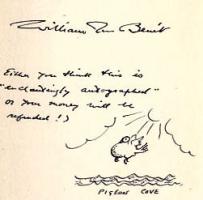 William Rose Benét
Either you think this is
"enchantingly autographed"
or your money will be
refunded!)
PIGEON COVE